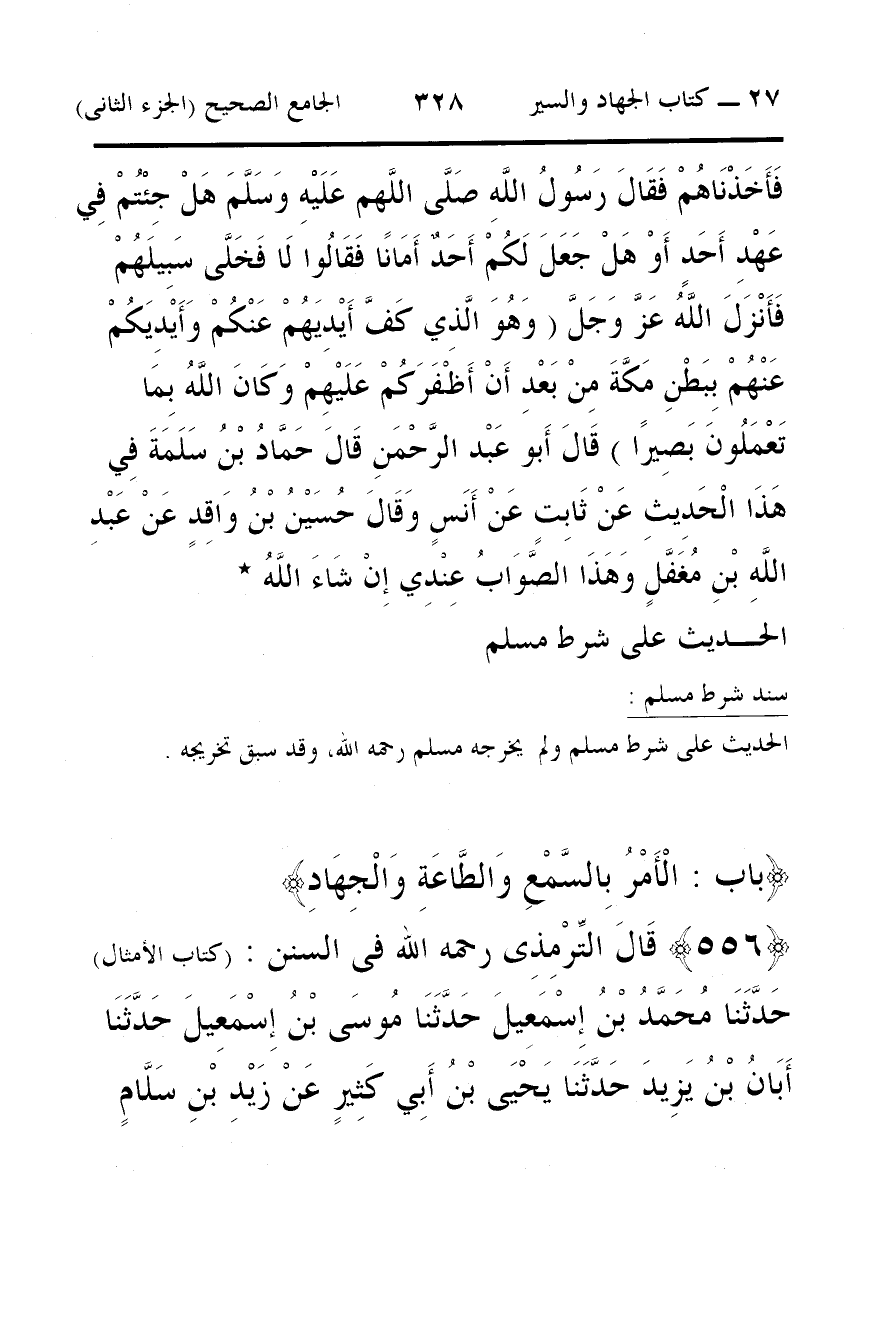 ٢٧ ـــ كتاب الجهاد والسير ٣٢٨ الجامع الصحيح (الجزء الثانى)
فَأَخَذْنَاهُمْ فَقَالَ رَسُولُ اللَّهِ صَلَّى اللهم عَلَيْهِ وَسَلَّمَ هَلْ جِئْتُمْ فِي
عَهْدِ أَحَدٍ أَوْ هَلْ جَعَلَ لَكُمْ أَحَدٌ أَمَانًا فَقَالُوا لَا فَخَلَّى سَبِيلَهُمْ
فَأَنْزَلَ اللَّهُ عَزَّ وَجَلَّ ( وَهُوَ الَّذِي كَفَّ أَيْدِيَهُمْ عَنْكُمْ وَأَيْدِيَكُمْ
عَنْهُمْ بِبَطْنِ مَكَّةَ مِنْ بَعْدِ أَنْ أَظْفَرَكُمْ عَلَيْهِمْ وَكَانَ اللَّهُ بِمَا
تَعْمَلُونَ بَصِيرًا ) قَالَ أَبو عَبْد الرَّحْمَنِ قَالَ حَمَّادُ بْنُ سَلَمَةَ فِي
هَذَا الْحَدِيثِ عَنْ ثَابِتٍ عَنْ أَنَسٍ وَقَالَ حُسَيْنُ بْنُ وَاقِدٍ عَنْ عَبْدِ
اللَّهِ بْنِ مُغَفَّلٍ وَهَذَا الصَّوَابُ عِنْدِي إِنْ شَاءَ اللَّهُ *
الحـــديث على شرط مسلم
سند شرط مسلم :
الحديث على شرط مسلم ولم يخرجه مسلم رحمه الله، وقد سبق تخريجه .
﴿باب : الْأَمْرُ بِالسَّمْعِ وَالطَّاعَةِ وَالْجِهَادِ﴾
﴿٥٥٦﴾ قَالَ التِّرْمِذِى رحمه الله فى السنن : (كتاب الأمثال)
حَدَّثَنَا مُحَمَّدُ بْنُ إِسْمَعِيلَ حَدَّثَنَا مُوسَى بْنُ إِسْمَعِيلَ حَدَّثَنَا
أَبَانُ بْنُ يَزِيدَ حَدَّثَنَا يَحْيَى بْنُ أَبِي كَثِيرٍ عَنْ زَيْدِ بْنِ سَلَّامٍ